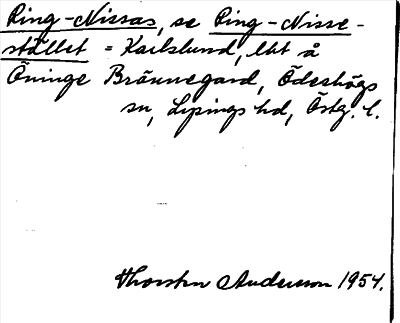 Ring-Nissas, se Ring-Nisse-
stället = Karlslund, lht å
Öninge Bräunnegard, Ödeshögs
sn, Lysings hd, Östg. l.
Thorsten Andersson 1954.